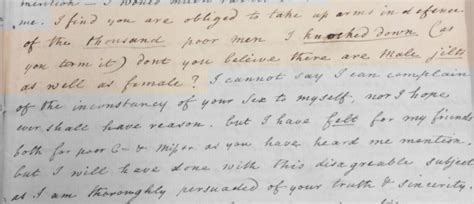 me. I find you are obliged to take up arms in defence
of the thousand poor men I knocked down (as
you term it) dont you beleive there are Male jilts
as well as female? I cannot say I can complain
of the inconstancy of your Sex to myself, nor I hope
ever shall have reason. but I have felt for my friends
both for poor C- & Miss as you have heard me mention.
but I will have done with this disagreable subject
as I am thoroughly persuaded of your truth & sincerity